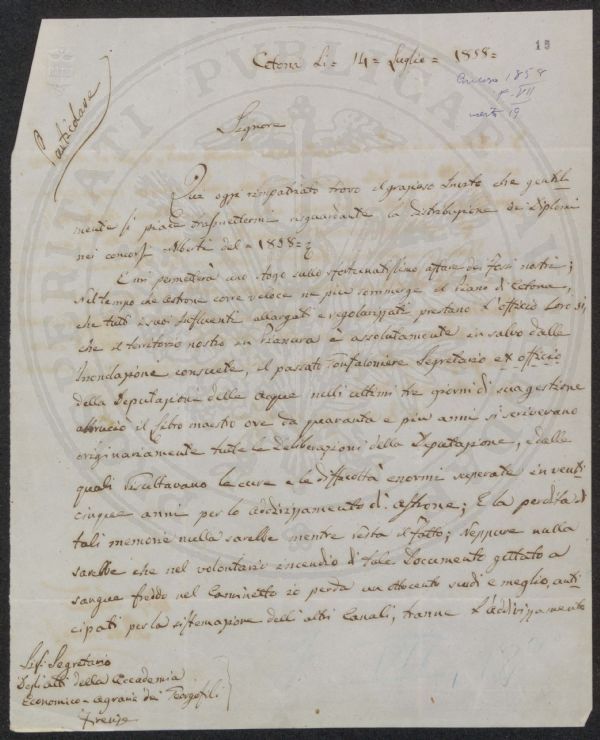 15
Cetona Li = 14 = Luglio = 1858 =
Concorso 1858
P. VII
inserto 19
Particolare
Signore
Qui oggi rimpatriato trovo il grazioso invito che gentil-
mente si piace trasmettermi risguardante la distribuzione dei diplomi
nei concorsi Alberti del = 1858 =
E mi permetterà uno sfogo sullo sfortunatissimo affare dei fossi nostri;
Nel tempo che Astrone corre veloce ne piu sommerge il Piano di Cetona,
che tutti i suoi influenti allargati e regolarizzati prestano l'officio loro si,
che il territorio nostro in Pianura è assolutamente in salvo dalle
Inondazione consuete, il passato Gonfaloniere Segretario ex officio
della Deputazione delle acque nelli ultimi tre giorni di sua gestione
abbrucio il Libro maestro ove da quaranta e piu anni si scrivevano
originariamente tutte le deliberazioni della Deputazione, e dalle
quali risultavano le cure e le difficoltà enormi superate in venti
cinque anni per lo addirizzamento di Astrone; E la perdita di
tali memorie nulla sarebbe mentre resta il fatto; Neppure nulla
sarebbe che nel volontario incendio di tale Documento gettato a
sangue freddo nel Caminetto io perda un ottocento scudi e meglio, anti
cipati per la sistemazione dell'altri Canali, tranne l'addirizzamento
Segretario
Degli atti della Accademia
Economico = Agraria dei Georgofili
Firenze
PERITATI PUBLICAE